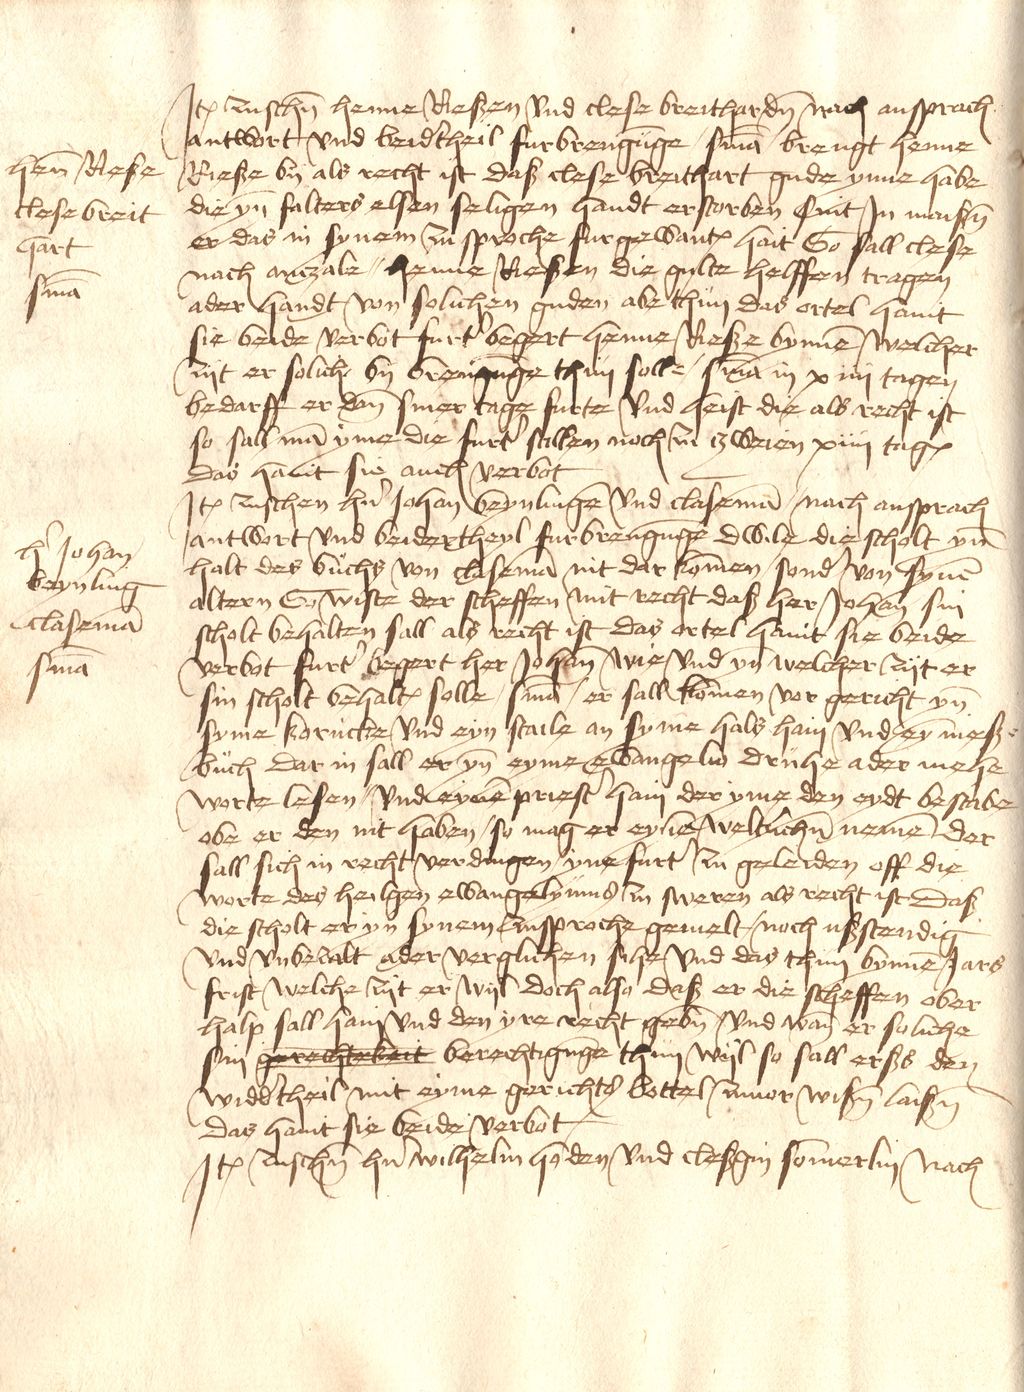 Jt(em) zusch(e)n henne Rießen vnd clese breithard(e)n nach ansprach
antwort vnd beidtheil furbrengu(n)ge s(e)n(tent)ia brengt henne
henn Rieße
clese breit
hart
s(e)n(tent)ia
Rieße by als recht ist daß clese breithart gude ynne habe
die yn falters elsen seligen handt erstorben sint Jn maiß(e)n
er das in synem zu sproche furgewant hait So sall clese
nach antzale henne Rießen die gulte helffen tragen
ader handt von soluchen guden abe thun das ortel haint
sie beide verbot furt(er) begert henne Rieße bynne(n) welicher
zijt er solich by brengu(n)ge thun solle s(e)n(tent)ia in xiiii tagen
bedarff er dan siner tage furte(r) vnd heist die als recht ist
so sall ma(n) yme die furt(er) stillen noch zu zweien xiiii tag(en)
das haint sie auch verbot
Jt(em) zuschen h(er)n Johan beynlinge(n) vnd clasema(n) nach ansprach
antwort vnd beidertheyl furbrengu(n)ge dwile die scholt yn(n)
h(er) Johan
beynling
clasema(n)
s(e)n(tent)ia
halt des buchs von clasema(n) nit dar komen sond(er) von syne(n)
altern So wiste der scheffen mit recht daß her Johan sin
scholt behalten sall als recht ist das ortel haint sie beide
verbot furt(er) begert her Johan wie vnd yn welcher zijt er
sin scholt behalt(en) solle s(e)n(tent)ia er sall komen vor gericht yn
syme korucke vnd eyn staile an syme hals hain vnd ey(n) meiß
buch dar in sall er yn eyme ewangelio druhe ader mehe
worte lesen vnd eyne(n) priest(er) hain der yme den eydt bestabe
obe er den nit haben so mag er eyne(n) weltlich(e)n neme(n) der
sall sich in recht verdingen yne furt(er) zu geleiden off die
worte des heilgen ewangeliu(m)s zu sweren als recht ist daß
die scholt er yn synem zusproche gemelt noch ußstendig
vnd vnbezalt ader verglichen sihe vnd das thun bynne(n) Jars
frist welche zijt er wijl doch also daß er die scheffen ober
halp sall hain vnd den yre recht geb(e)n vnd wan er soliche
sin gerechtekeit berechtigu(n)ge thun wijl so sall erßs den
widd(er)theil mit eyme gerichts bottel zuuor wiß(e)n laiß(e)n
das haint sie beide verbot
Jt(em) zusch(e)n h(er)n wilhelm honden vnd cleßgin somerlin nach